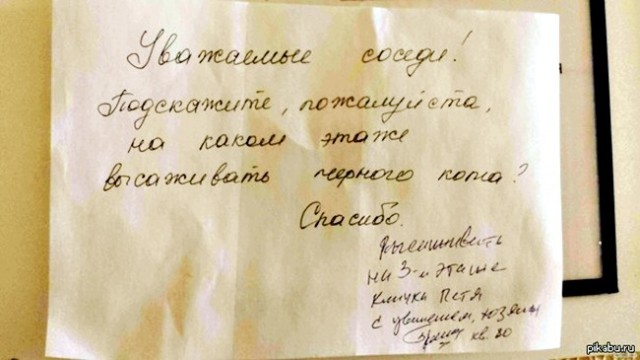 Уважаемые соседи!
Подскажите, пожалуйста,
на каком этаже
высаживать черного кота?
Спасибо.
на 3-м этаже
кличка Петя
с уважением, хозяин
кв. 80
pikabu.ru